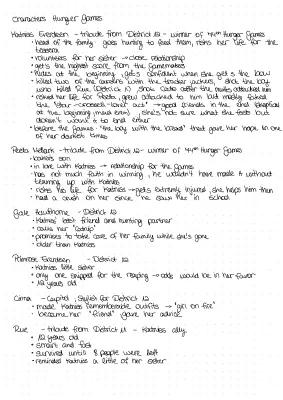 Characters Hunger Games
Katniss Everdeen - tribute from District 12 - winner of 74th Hunger Games
• head of the family goes hunting to feed them, risks her life for the
• volunteers for her sister → close relationship
• gets the highest score from the gamemakers
• hides at the beginning, gets confident when she gets the bow
• killed two of the careers with the tracker jackers, shot the boy
who killed Rue (District 1)
• risked her life for Peeta, grew attached to him but mostly faked
the "star-crossed-lover act" → good friends in the end
at the beginning, she's not sure what she feels but
doesn't want it to end either
• before the games "the boy with the bread" that gave her hope in one
of her darkest times
Peeta Mellark - tribute from District 12 - winner of 74th Hunger Games
• bakers son
• in love with Katniss → relationship for the games
• has not much faith in winning, he wouldn't have made it without
teaming up with Katniss
• risks his life for Katniss → gets extremely injured, she helps him then
• had a crush on her since he saw her in school
Gale Hawthorne - District 12
• Katniss' best friend and hunting partner
• calls her "Catnip"
• promises to take care of her family while she's gone
• older than Katniss
Primrose Everdeen - District 12
• Katniss little sister
• only one slipped for the reaping → odds would be in her favor
• 12 years old
Cinna - Capitol, Stylist for District 12
• made Katniss rememberable outfits → "girl on fire"
• became her "friend" gave her advice
Rue - tribute from District 11 - Katniss ally
• 12 years old
• smart and fast
• survived until 8 people were left
• reminded Katniss a little of her sister